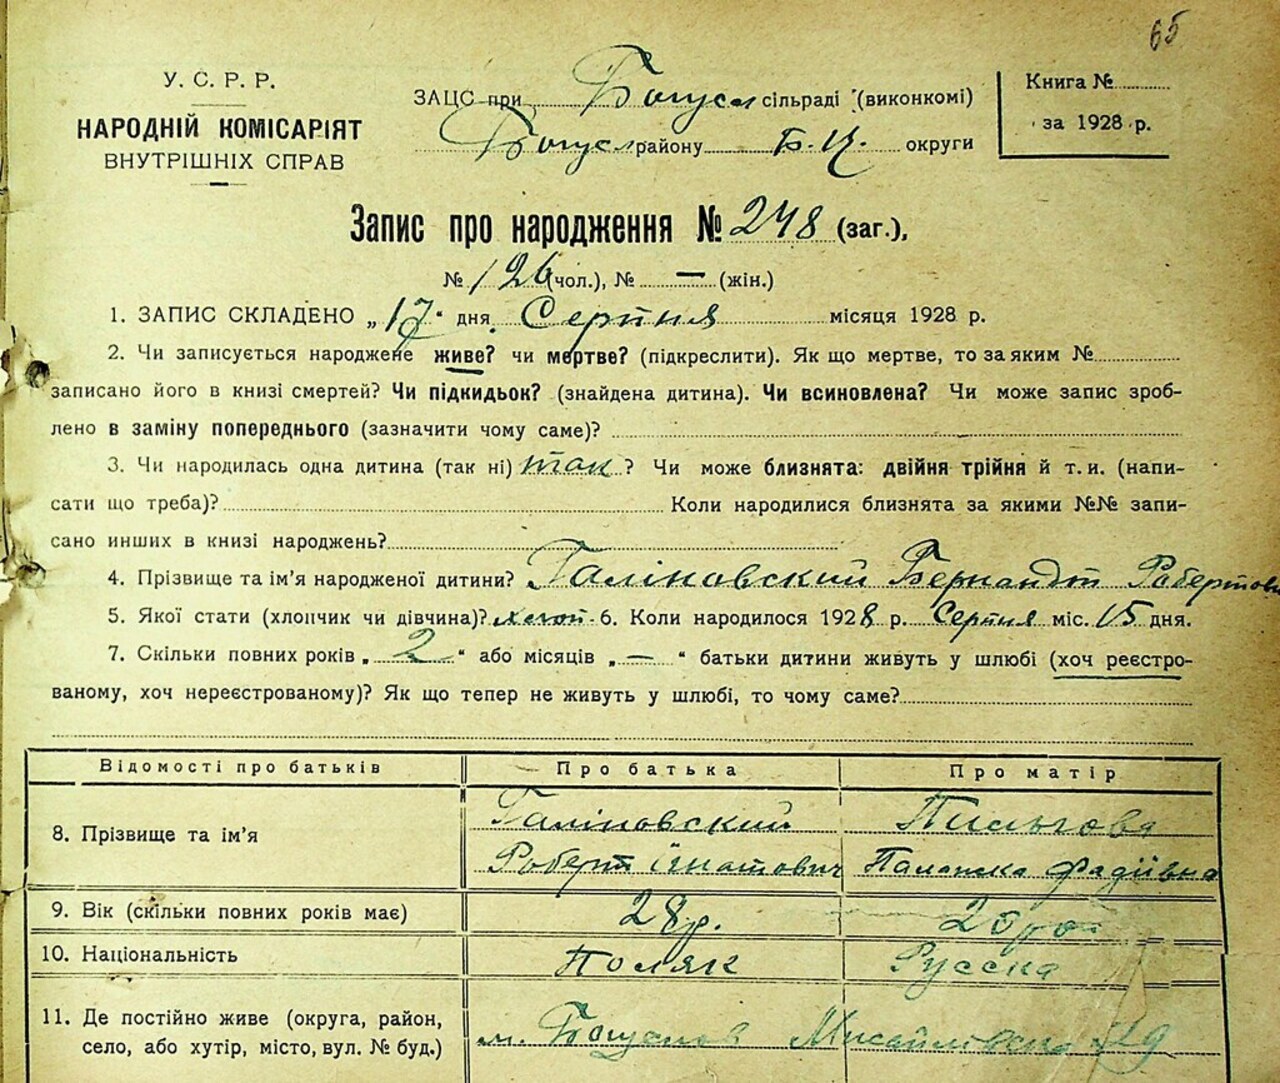 65
У. С. Р. Р.
НАРОДНІЙ КОМІСАРІЯТ
ВНУТРІШНІХ СПРАВ
ЗАЦС при Богусл сільраді (виконкомі)
Богусл району Б. Ц. округи
Книга №
за 1928 р.
Запис про народження № 248 (заг.),
№ 126 (чол.), № — (жін.)
1. ЗАПИС СКЛАДЕНО „17“ дня Серпня місяця 1928 р.
2. Чи записується народжене живе? чи мертве? (підкреслити). Як що мертве, то за яким №
записано його в книзі смертей? Чи підкидьок? (знайдена дитина). Чи всиновлена? Чи може запис зроб-
лено в заміну попереднього (зазначити чому саме)?
3. Чи народилась одна дитина (так ні) так? Чи може близнята: двійня трійня й т. и. (напи-
сати що треба)? Коли народилися близнята за якими №№ запи-
сано инших в книзі народжень?
4. Прізвище та ім'я народженої дитини? Галіновский Бернандт Робертови
5. Якої стати (хлопчик чи дівчина)? 6. Коли народилося 1928 р. Серпня міс. 15 дня.
7. Скільки повних років „2“ або місяців „—“ батьки дитини живуть у шлюбі (хоч реєстро-
ваному, хоч нереєстрованому)? Як що тепер не живуть у шлюбі, то чому саме?
Відомості про батьків Про батька Про матір
8. Прізвище та ім'я
Галіновский
Роберт Ігнатович
Фадіївна
9. Вік (скільки повних років має) 28 р.
10. Національність Поляк Русска
11. Де постійно живе (округа, район,
село, або хутір, місто, вул. № буд.)
м. Богуслав